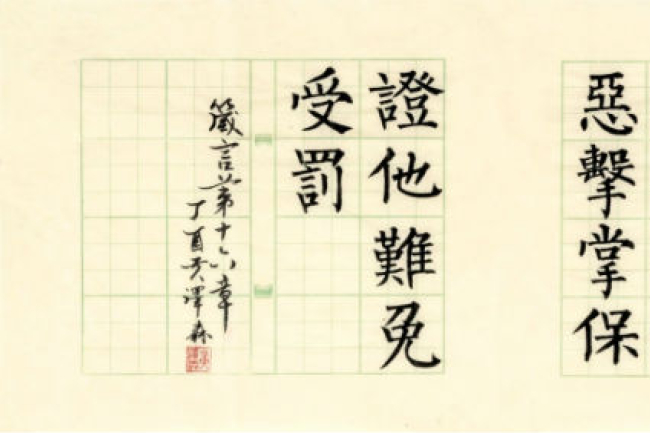 惡擊掌保
證他難免
受罰
箴言第十六章
丁酉澤森